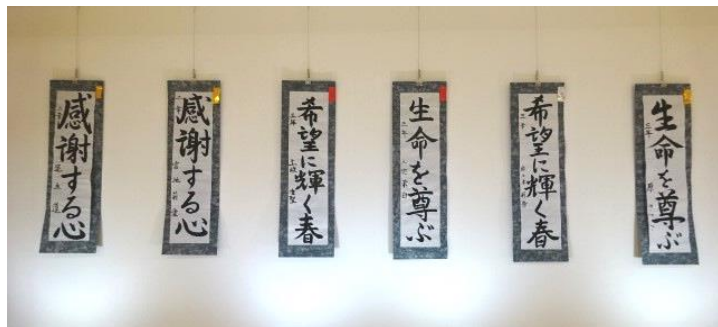 感謝する心
感謝する心
希望に輝く春
生命を尊ぶ
希望に輝く春
生命を尊ぶ